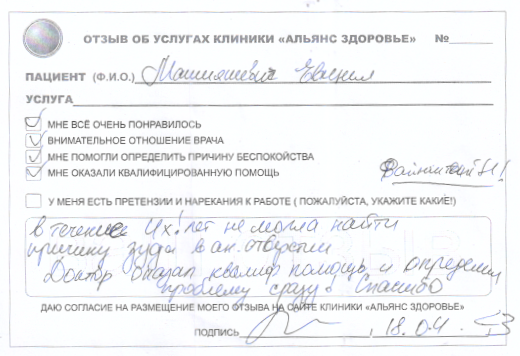 ОТЗЫВ ОБ УСЛУГАХ КЛИНИКИ «АЛЬЯНС ЗДОРОВЬЕ» №
ПАЦИЕНТ (Ф.И.О.)
УСЛУГА
МНЕ ВСЁ ОЧЕНЬ ПОНРАВИЛОСЬ
ВНИМАТЕЛЬНОЕ ОТНОШЕНИЕ ВРАЧА
МНЕ ПОМОГЛИ ОПРЕДЕЛИТЬ ПРИЧИНУ БЕСПОКОЙСТВА
МНЕ ОКАЗАЛИ КВАЛИФИЦИРОВАННУЮ ПОМОЩЬ
У МЕНЯ ЕСТЬ ПРЕТЕНЗИИ И НАРЕКАНИЯ К РАБОТЕ ( ПОЖАЛУЙСТА, УКАЖИТЕ КАКИЕ!)
в течение 4х! лет не могла найти
причину зуда в ан. отверстии
Доктор оказал квалиф помощь и определил
проблему сразу! Спасибо
ДАЮ СОГЛАСИЕ НА РАЗМЕЩЕНИЕ МОЕГО ОТЗЫВА НА САЙТЕ КЛИНИКИ «АЛЬЯНС ЗДОРОВЬЕ»
ПОДПИСЬ , 18.04